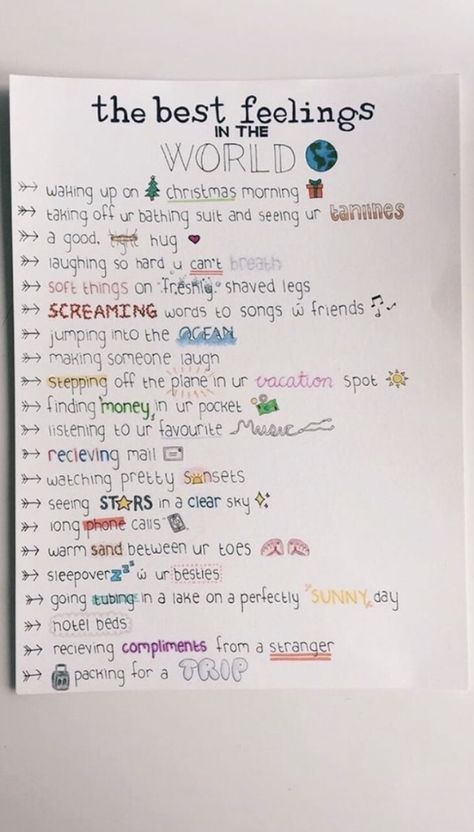 the best feelings
IN THE
WORLD
waking up on christmas morning
taking off ur bathing suit and seeing ur tanlines
a good, tight hug
laughing so hard u can't breath
soft things on "freshly" shaved legs
SCREAMING words to songs w friends
jumping into the OCEAN
making someone laugh
stepping off the plane in ur vacation spot
finding money in ur pocket
listening to ur favourite Music
recieving mail
watching pretty sunsets
seeing STARS in a clear sky
long phone calls
warm sand between ur toes
sleepover zzz w ur besties
going tubing in a lake on a perfectly SUNNY day
hotel beds
recieving compliments from a stranger
packing for a TRIP